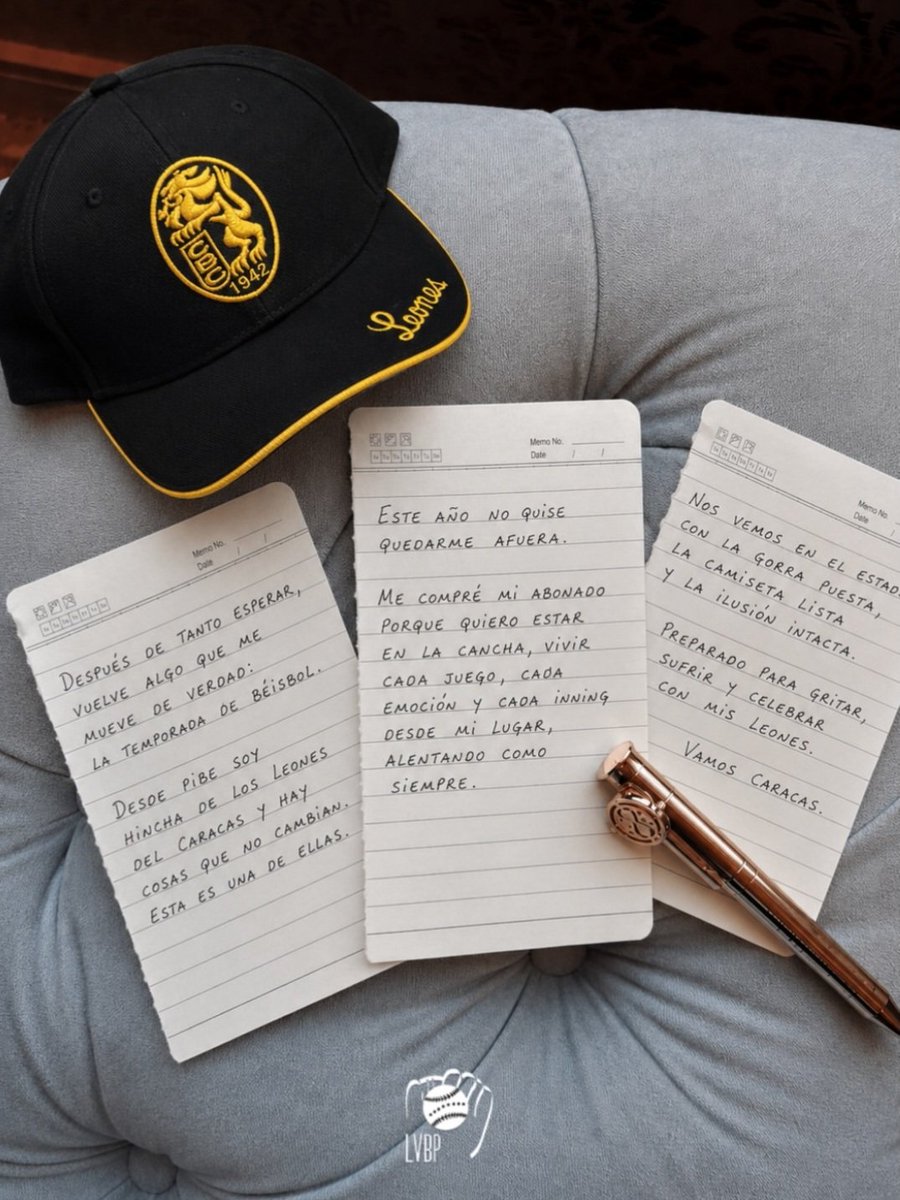 CBC
1942
Leones
Memo No.
Date / /
DESPUÉS DE TANTO ESPERAR,
VUELVE ALGO QUE ME
MUEVE DE VERDAD:
LA TEMPORADA DE BÉISBOL.
DESDE PIBE SOY
HINCHA DE LOS LEONES
DEL CARACAS Y HAY
COSAS QUE NO CAMBIAN.
ESTA ES UNA DE ELLAS.
Memo No.
Date / /
ESTE AÑO NO QUISE
QUEDARME AFUERA.
ME COMPRÉ MI ABONADO
PORQUE QUIERO ESTAR
EN LA CANCHA, VIVIR
CADA JUEGO, CADA
EMOCIÓN Y CADA INNING
DESDE MI LUGAR,
ALENTANDO COMO
SIEMPRE.
Memo No.
Date /
NOS VEMOS EN EL ESTAD
CON LA GORRA PUESTA,
LA CAMISETA LISTA
Y LA ILUSIÓN INTACTA.
PREPARADO PARA GRITAR,
SUFRIR Y CELEBRAR
CON MIS LEONES.
VAMOS CARACAS.
LVBP